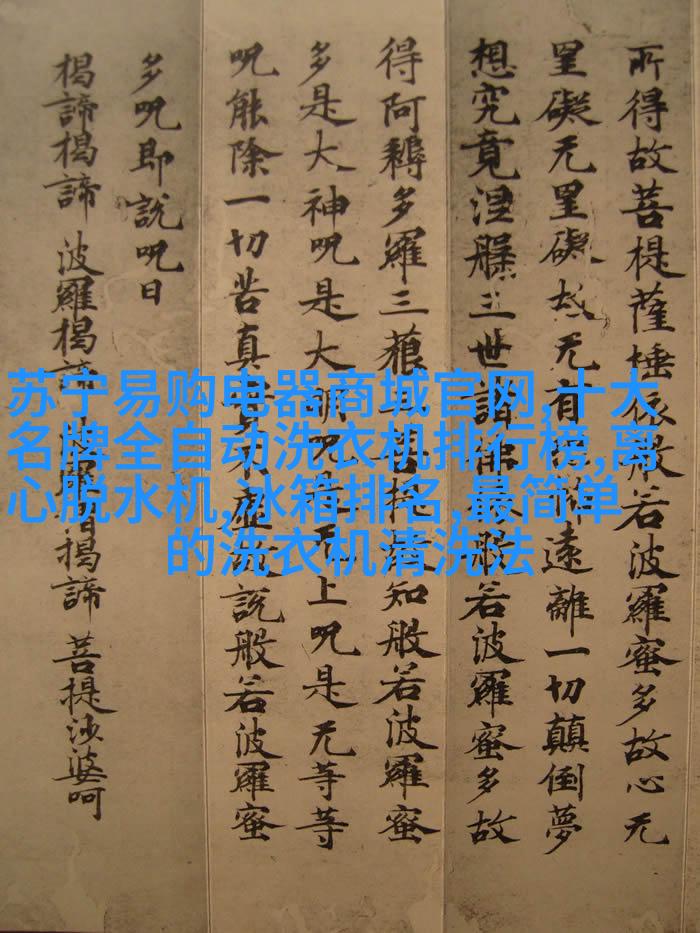 所得故菩提薩埵依般若波羅蜜多故心无
罣礙无罣礙故无有遠離一切顛倒夢
想究竟涅槃三世諸佛依般若波羅蜜多故
得阿耨多羅三藐三菩提故知般若波羅蜜
多是大神呪是大明呪是无上呪是无等等
呪能除一切苦真實不虛故說般若波羅蜜
多呪即說呪曰
揭諦揭諦 波羅揭諦 波羅僧揭諦 菩提沙婆呵
苏宁易购电器商城官网,十大
名牌全自动洗衣机排行榜,离
心脱水机,冰箱排名,最简单
的洗衣机清洗法